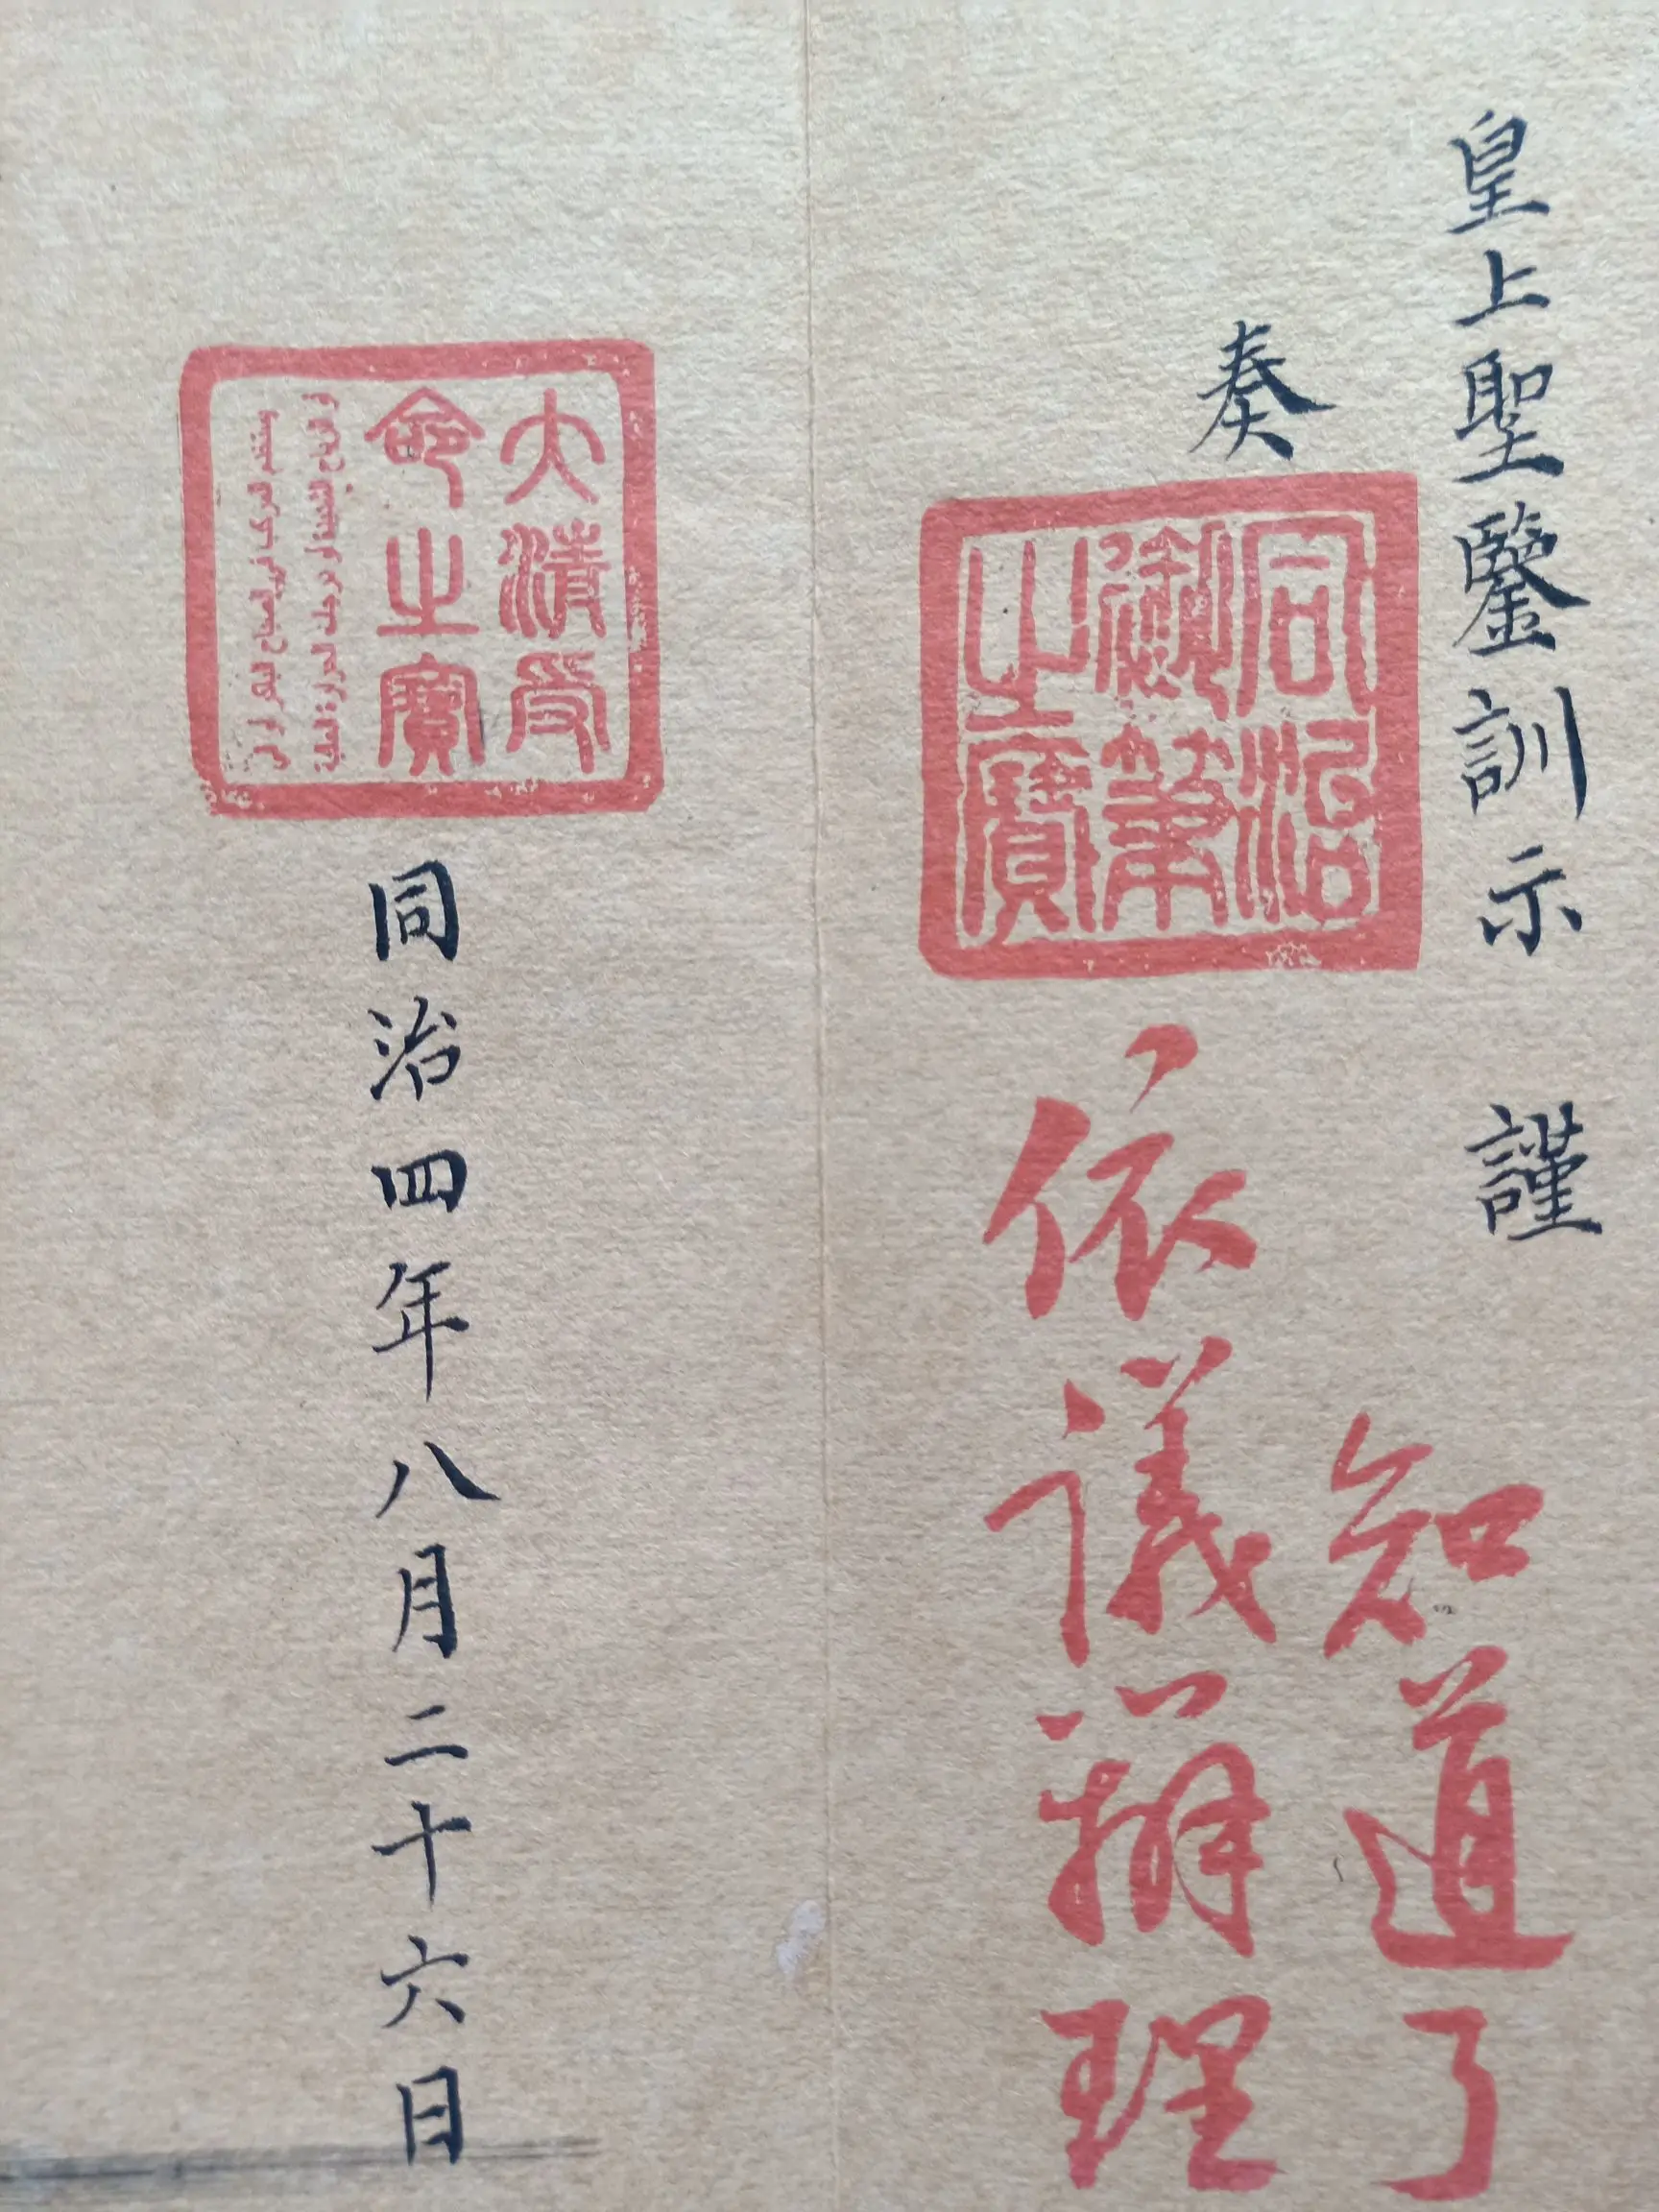 皇上聖鑒訓示 謹
奏
同治
御筆
之寶
知道了
依議辦理
大清受
命之寶
同治四年八月二十六日